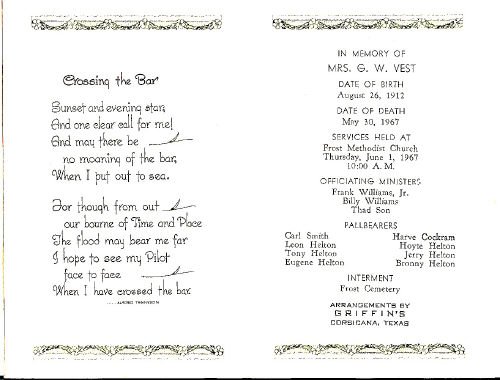 Crossing the Bar
Sunset and evening star,
And one clear call for me!
And may there be
no moaning of the bar,
When I put out to sea.
For though from out
our bourne of Time and Place
The flood may bear me far
I hope to see my Pilot
face to face
When I have crossed the bar.
ALFRED TENNYSON
IN MEMORY OF
MRS. G. W. VEST
DATE OF BIRTH
August 26, 1912
DATE OF DEATH
May 30, 1967
SERVICES HELD AT
Frost Methodist Church
Thursday, June 1, 1967
10:00 A. M.
OFFICIATING MINISTERS
Frank Williams, Jr.
Billy Williams
Thad Son
PALLBEARERS
Carl Smith
Leon Helton
Tony Helton
Eugene Helton
Harve Cockram
Hoyte Helton
Jerry Helton
Bronny Helton
INTERMENT
Frost Cemetery
ARRANGEMENTS BY
GRIFFIN'S
CORSICANA, TEXAS